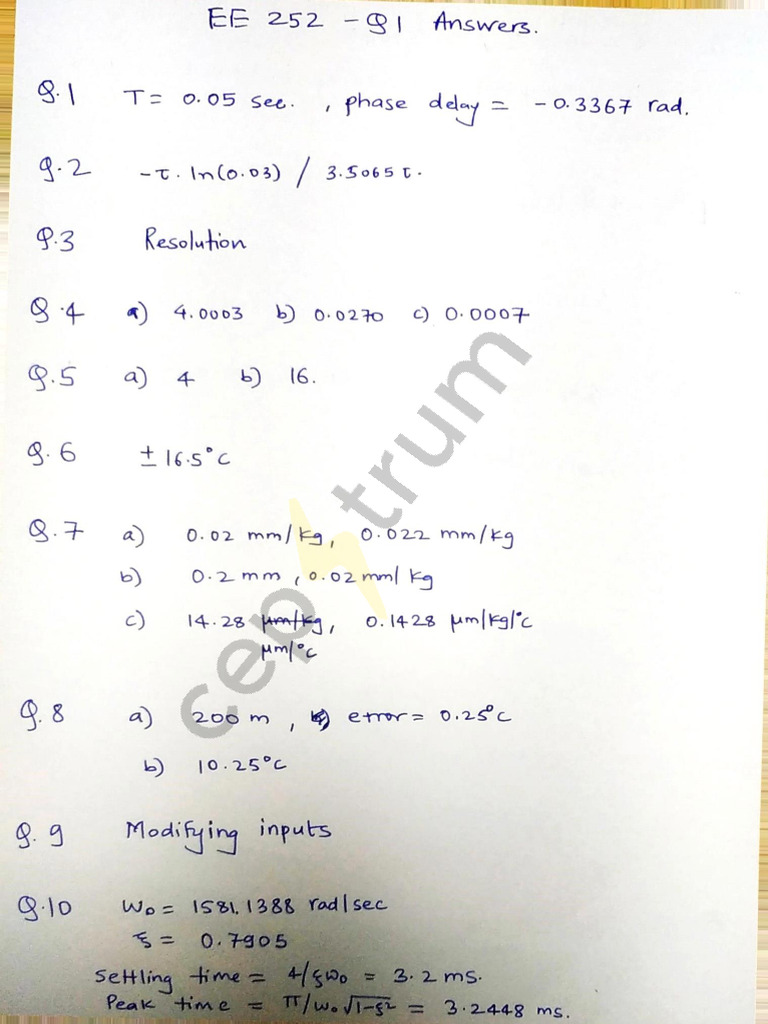 EE 252 - Q1 Answers.
Q.1 T = 0.05 sec. , phase delay = -0.3367 rad.
Q.2 -τ. ln(0.03) / 3.5065 τ.
Q.3 Resolution
Q.4 a) 4.0003 b) 0.0270 c) 0.0007
Q.5 a) 4 b) 16.
Q.6 ± 16.5°C
Q.7 a) 0.02 mm/kg, 0.022 mm/kg
b) 0.2 mm, 0.02 mm/kg
c) 14.28 μm/kg, 0.1428 μm/kg/°C
μm/°C
Q.8 a) 200 m, error = 0.25°C
b) 10.25°C
Q.9 Modifying inputs
Q.10 ω₀ = 1581.1388 rad/sec
ξ = 0.7905
Settling time = 4/ξω₀ = 3.2 ms.
Peak time = π/ω₀√1-ξ² = 3.2448 ms.
ceptrum